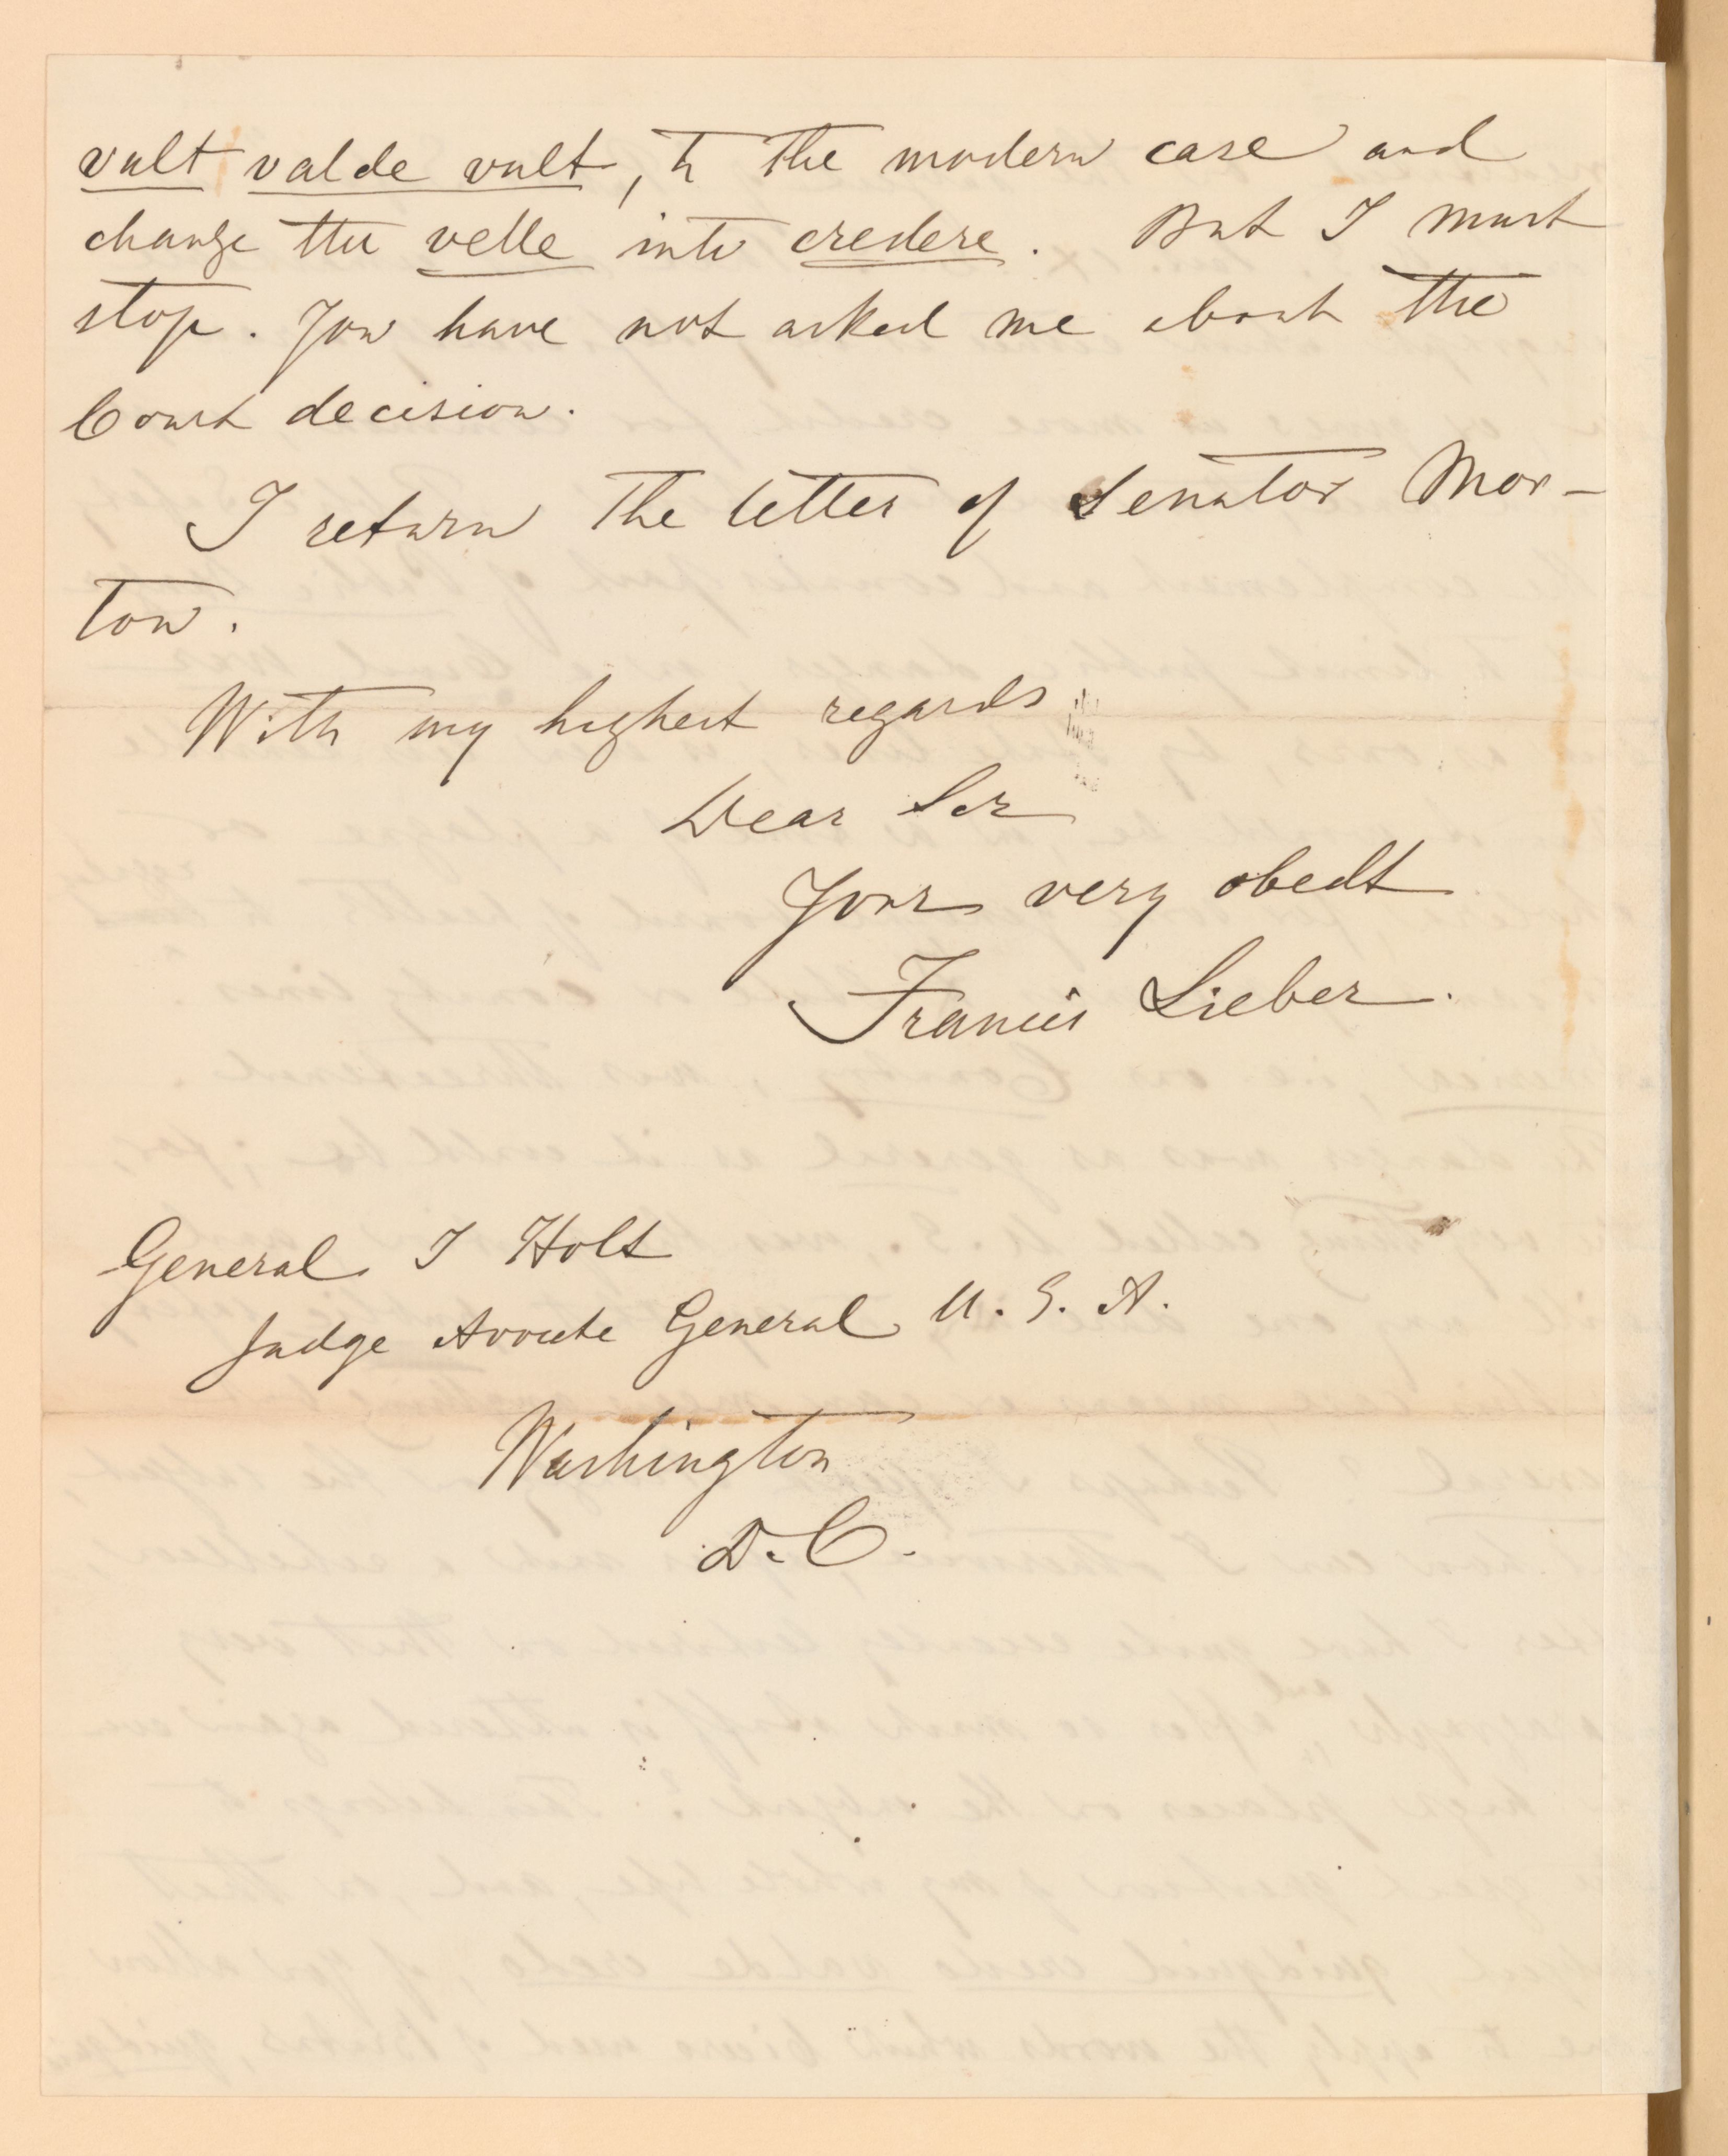 vult valde vult, to the modern case and
change the velle into credere. But I must
stop. You have not asked me about the
Court decision.
I return the letter of Senator Mor-
ton.
With my highest regards
Dear Sir
Your very obedt
Francis Lieber.
General J Holt
Judge Avocate General U. S. A.
Washington
D. C.